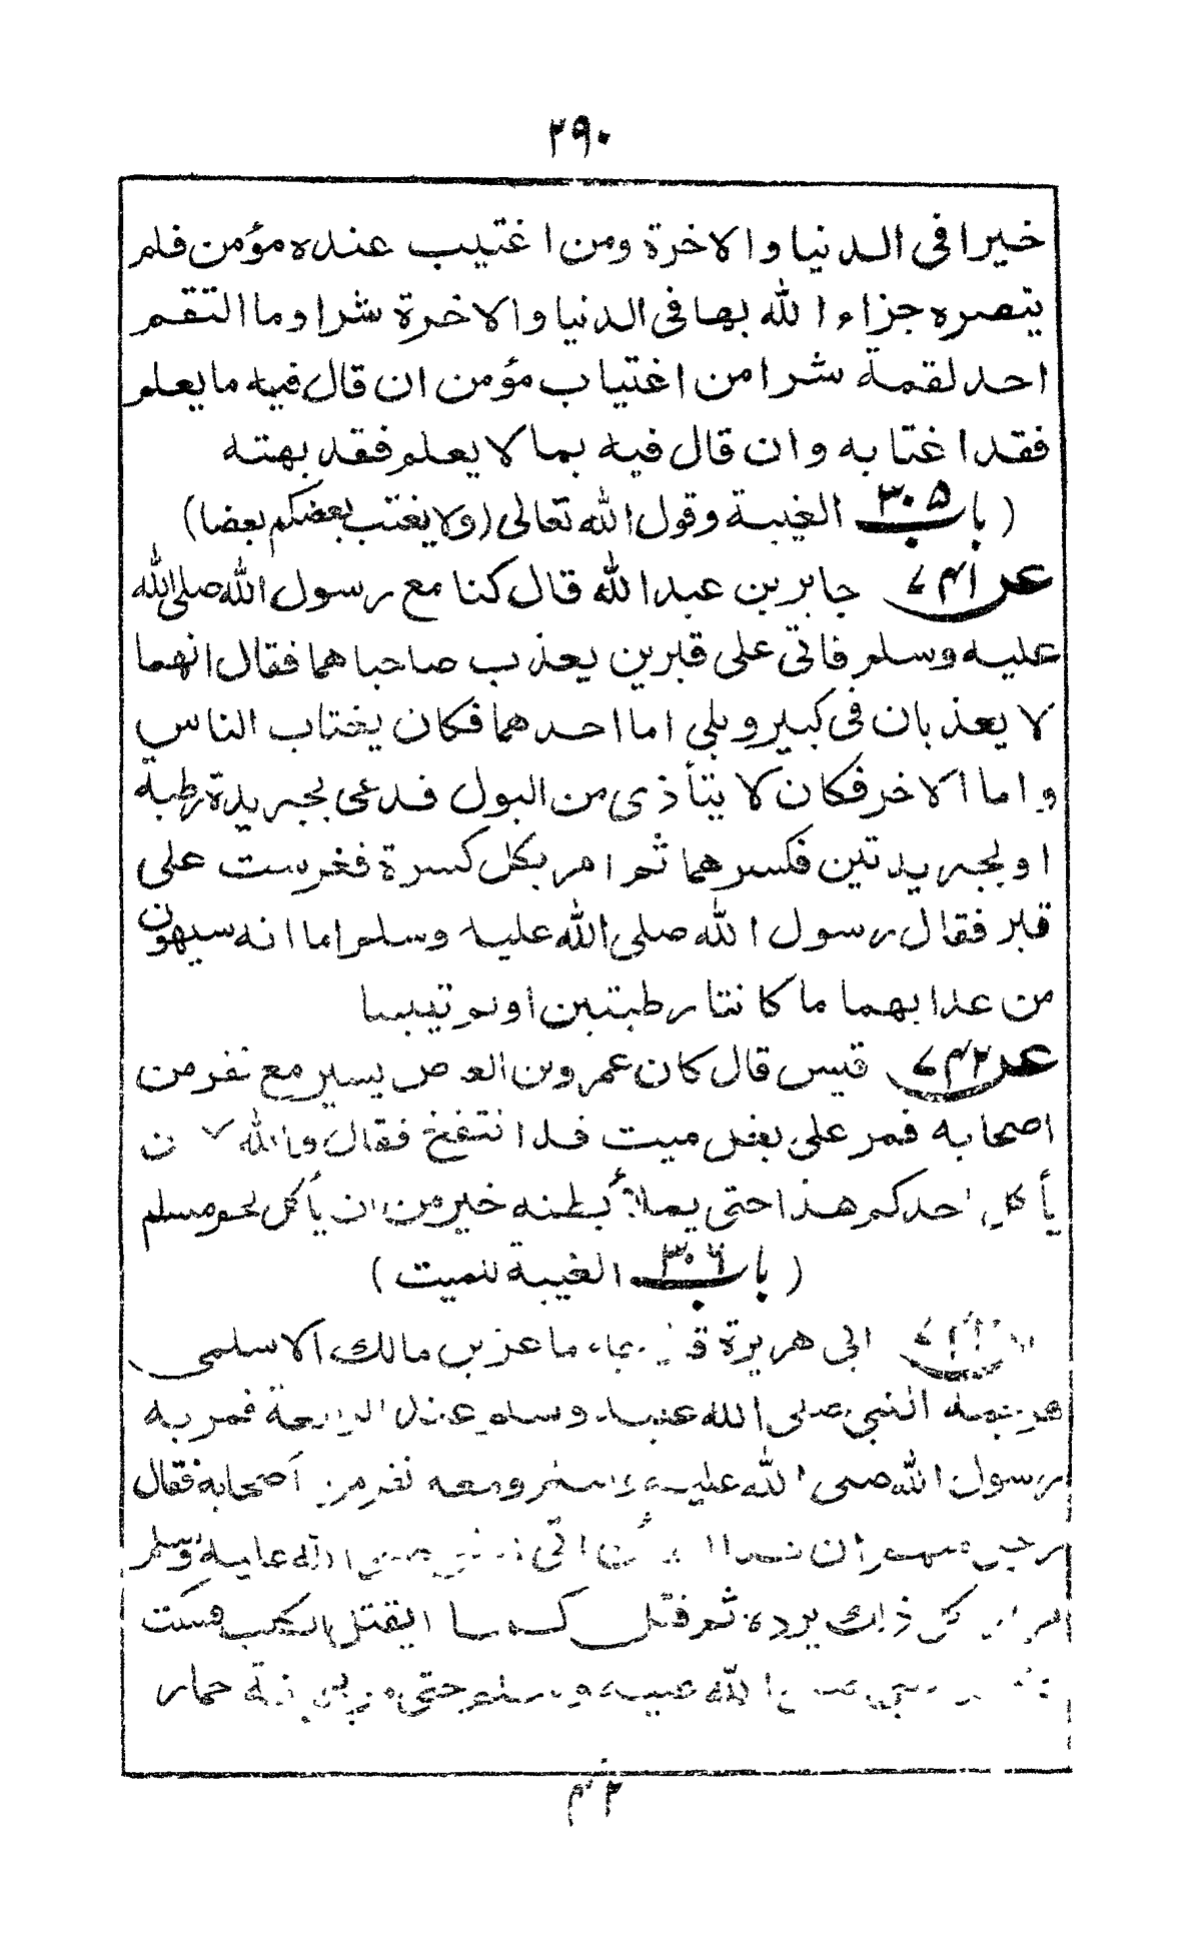 ٢٩٠
خيرا فى الدنيا والاخرة ومن اغتيب عنده مؤمن فلم
ينصره جزاء الله بها فى الدنيا والاخرة شرا وما التقم
احد لقمة شرا من اغتياب مؤمن ان قال فيه ما يعلم
فقد اغتابه وان قال فيه بما لا يعلم فقد بهته
( باب ٣٠٥ الغيبة وقول الله تعالى (ولا يغتب بعضكم بعضا)
عن ٧٤١ جابر بن عبد الله قال كنا مع رسول الله صلى الله
عليه وسلم فاتى على قبرين يعذب صاحباهما فقال انهما
لا يعذبان فى كبير وبلى اما احدهما فكان يغتاب الناس
واما الاخر فكان لا يتأذى من البول فدعى بجريدة رطبة
او بجريدتين فكسرهما ثم امر بكل كسرة فغرست على
قبر فقال رسول الله صلى الله عليه وسلم اما انه سيهون
من عذابهما ما كانتا رطبتين او لم تيبسا
عن ٧٤٢ قيس قال كان عمرو بن العاص يسير مع نفر من
اصحابه فمر على بغل ميت قد انتفخ فقال والله لان
يأكل احدكم هذا حتى يملأ بطنه خير من ان يأكل لحم مسلم
( باب ٣٠٦ الغيبة للميت )
ابى هريرة جاء ماعز بن مالك الاسلمى
النبى صلى الله عليه وسلم عند الرابعة فمر به
رسول الله صلى الله عليه وسلم ومعه نفر من اصحابه فقال
رجل منهم ان هذا اتى صلى الله عليه وسلم
كل ذلك يرده ثم قتل كما يقتل الكلب فسكت
صلى الله عليه وسلم حتى مر حمار